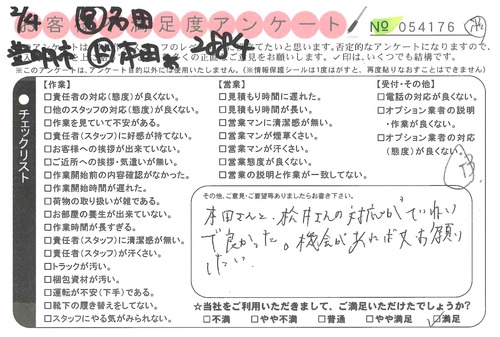 2/4
お客様満足度アンケート
№ 054176
※このアンケートは、アンケート目的以外には使用いたしません。(※情報保護シールは1度はがすと、再度貼りなおすことはできません)
チェックリスト
【作業】
□責任者の対応(態度)が良くない。
□他のスタッフの対応(態度)が良くない。
□作業を見ていて不安がある。
□責任者(スタッフ)に好感が持てない。
□お客様への挨拶が出来ていない。
□ご近所への挨拶・気遣いが無い。
□作業開始前の内容確認がなかった。
□作業開始時間が遅れた。
□荷物の取り扱いが雑である。
□お部屋の養生が出来ていない。
□作業時間が長すぎる。
□責任者(スタッフ)に清潔感が無い。
□責任者(スタッフ)が汗くさい。
□トラックが汚い。
□梱包資材が汚い。
□運転が不安(下手)である。
□靴下の履き替えをしてない。
□スタッフにやる気がみられない。
【営業】
□見積もり時間に遅れた。
□見積もり時間が長い。
□営業マンに清潔感が無い。
□営業マンが煙草くさい。
□営業マンが汗くさい。
□営業態度が良くない。
□営業の説明と作業が一致してない。
【受付・その他】
□電話の対応が良くない。
□オプション業者の説明
・作業が良くない。
□オプション業者の対応
(態度)が良くない。
その他、ご意見・ご要望等ありましたらお書き下さい。
本田さんと、松井さんの対応がていねい
で良かった。機会があれば又お願い
したい。
☆当社をご利用いただきまして、ご満足いただけたでしょうか?
□不満 □やや不満 □普通 □やや満足 □満足